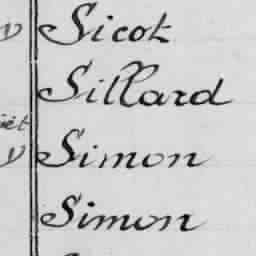 Sicot
Sillard
Simon
Simon